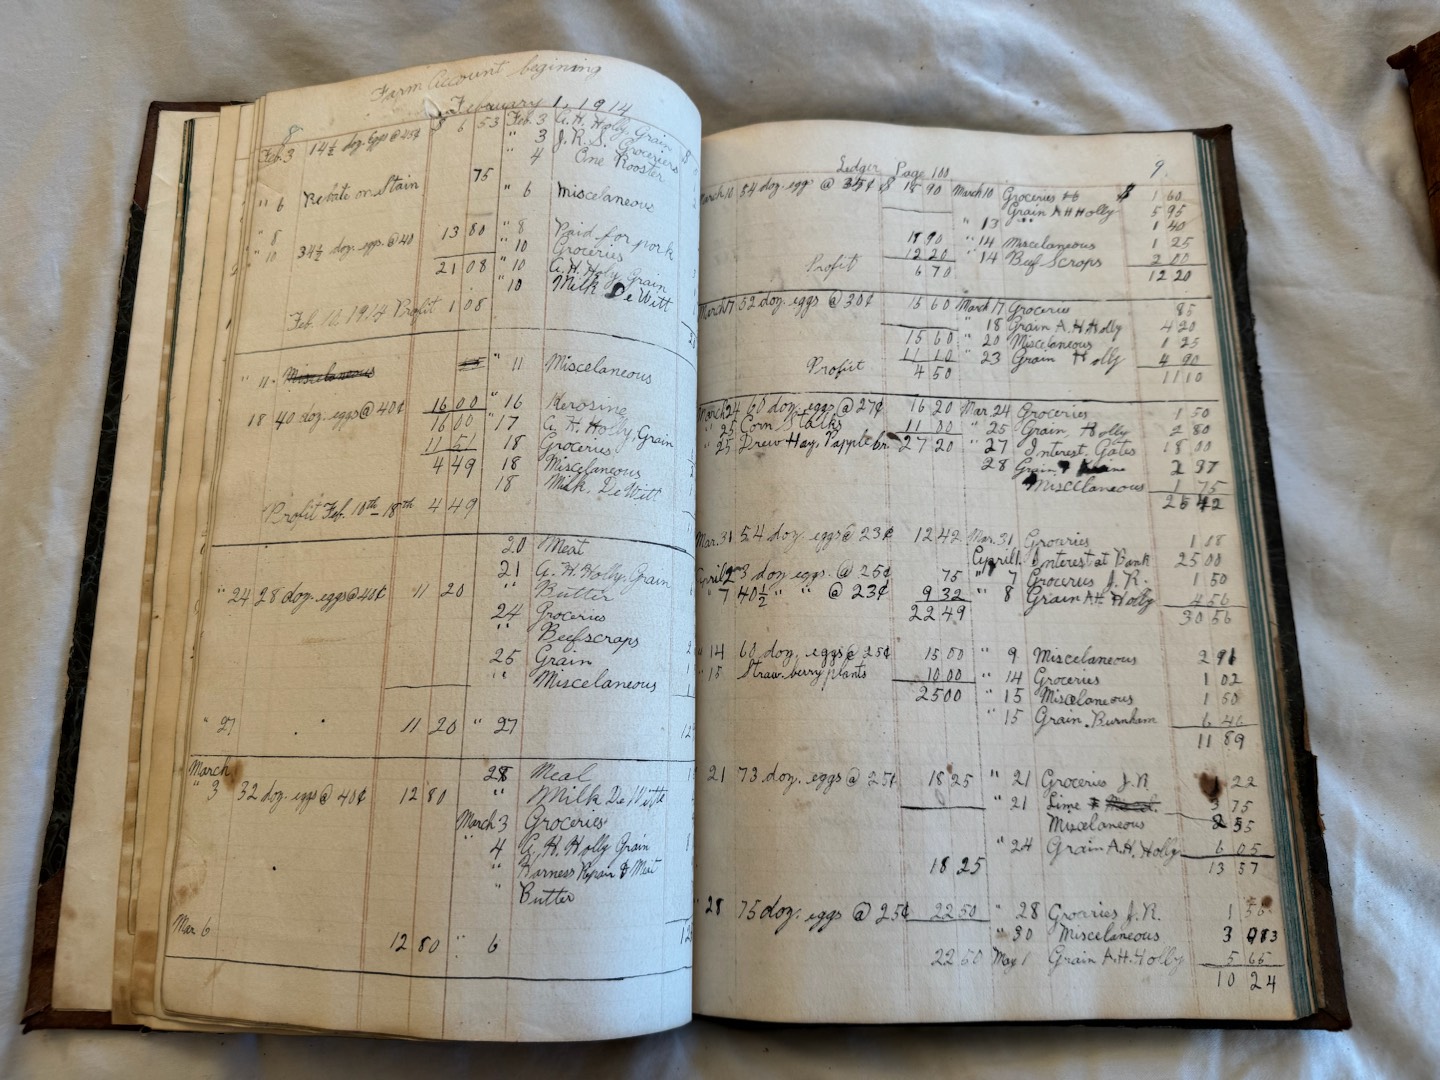 Farm Account begining
February 1, 1914
8
Feb. 3 14½ doz. Eggs @ 45¢ $ 6 53 Feb. 3 A. H. Holly, Grain $
" 3 J. R. S. Groceries
" 4 One Rooster
" 6 Rebate on Stain 75 " 6 Miscelaneous
" 8 " 8 Paid for pork
" 10 34½ doz. eggs @ 40 13 80 " 10 Groceries
21 08 " 10 A. H. Holy, Grain
" 10 Milk De Witt
Feb. 10, 1914 Profit 1 08
" 11 " 11 Miscelaneous
18 40 doz. eggs @ 40¢ 16 00 " 16 Kerosine
16 00 " 17 A. H. Holly, Grain
11 51 18 Groceries
4 49 18 Miscelaneous
18 Milk, De Witt
Profit Feb. 10th - 18th 4 49
20 Meat
21 A. H. Holly, Grain
" 24 28 doz. eggs @ 40¢ 11 20 " Butter
24 Groceries
" Beefscraps
25 Grain
" Miscelaneous
" 27 11 20 " 27
March 28 Meal
" 3 32 doz. eggs @ 40¢ 12 80 " Milk De Witte
March 3 Groceries
" 4 A. H. Holly Grain
" Harness Repair & Meat
" Butter
Mar. 6 12 80 " 6
Ledger Page 100 9.
March 10 54 doz. egg @ 35¢ $ 18 90 March 10 Groceries $ 1 60
Grain A H Holly 5 95
" 13 " " 1 40
18 90 " 14 Miscelaneous 1 25
12 20 " 14 Beef Scrops 2 00
Profit 6 70 12 20
March 17 52 doz. eggs @ 30¢ 15 60 March 17 Groceries 85
" 18 Grain A. H. Holly 4 20
15 60 " 20 Miscelaneous 1 25
11 10 " 23 Grain Holly 4 90
Profit 4 50 11 10
March 24 60 doz. eggs @ 27¢ 16 20 Mar. 24 Groceries 1 50
" 25 Corn Stalks 11 00 " 25 Grain, Holly 2 80
" 25 Drew Hay, 27 20 " 27 Interest. Gates 18 00
28 Grain 2 37
Miscelaneous 1 75
25 42
Mar. 31 54 doz. eggs @ 23¢ 12 42 Mar. 31 Groceries 1 18
April 1. Interest at Bank 25 00
April 2 3 doz. eggs. @ 25¢ 75 " 7 Groceries J. R. 1 50
" 7 40½ " " @ 23¢ 9 32 " 8 Grain A. H. Holly 4 56
22 49 30 56
" 14 60 doz. eggs @ 25¢ 15 00 " 9 Miscelaneous 2 91
" 15 Straw. berry plants 10 00 " 14 Groceries 1 02
25 00 " 15 Miscelaneous 1 50
" 15 Grain. Burnham 6 46
11 89
21 73 doz. eggs @ 25¢ 18 25 " 21 Groceries J. R 22
" 21 Lime 3 75
Miscelaneous 55
" 24 Grain A. H. Holly 6 05
18 25 13 57
" 28 75 doz. eggs @ 25¢ 22 50 " 28 Groceries J. R. 1
" 30 Miscelaneous 3
22 50 May 1 Grain A. H. Holly 5 65
10 24